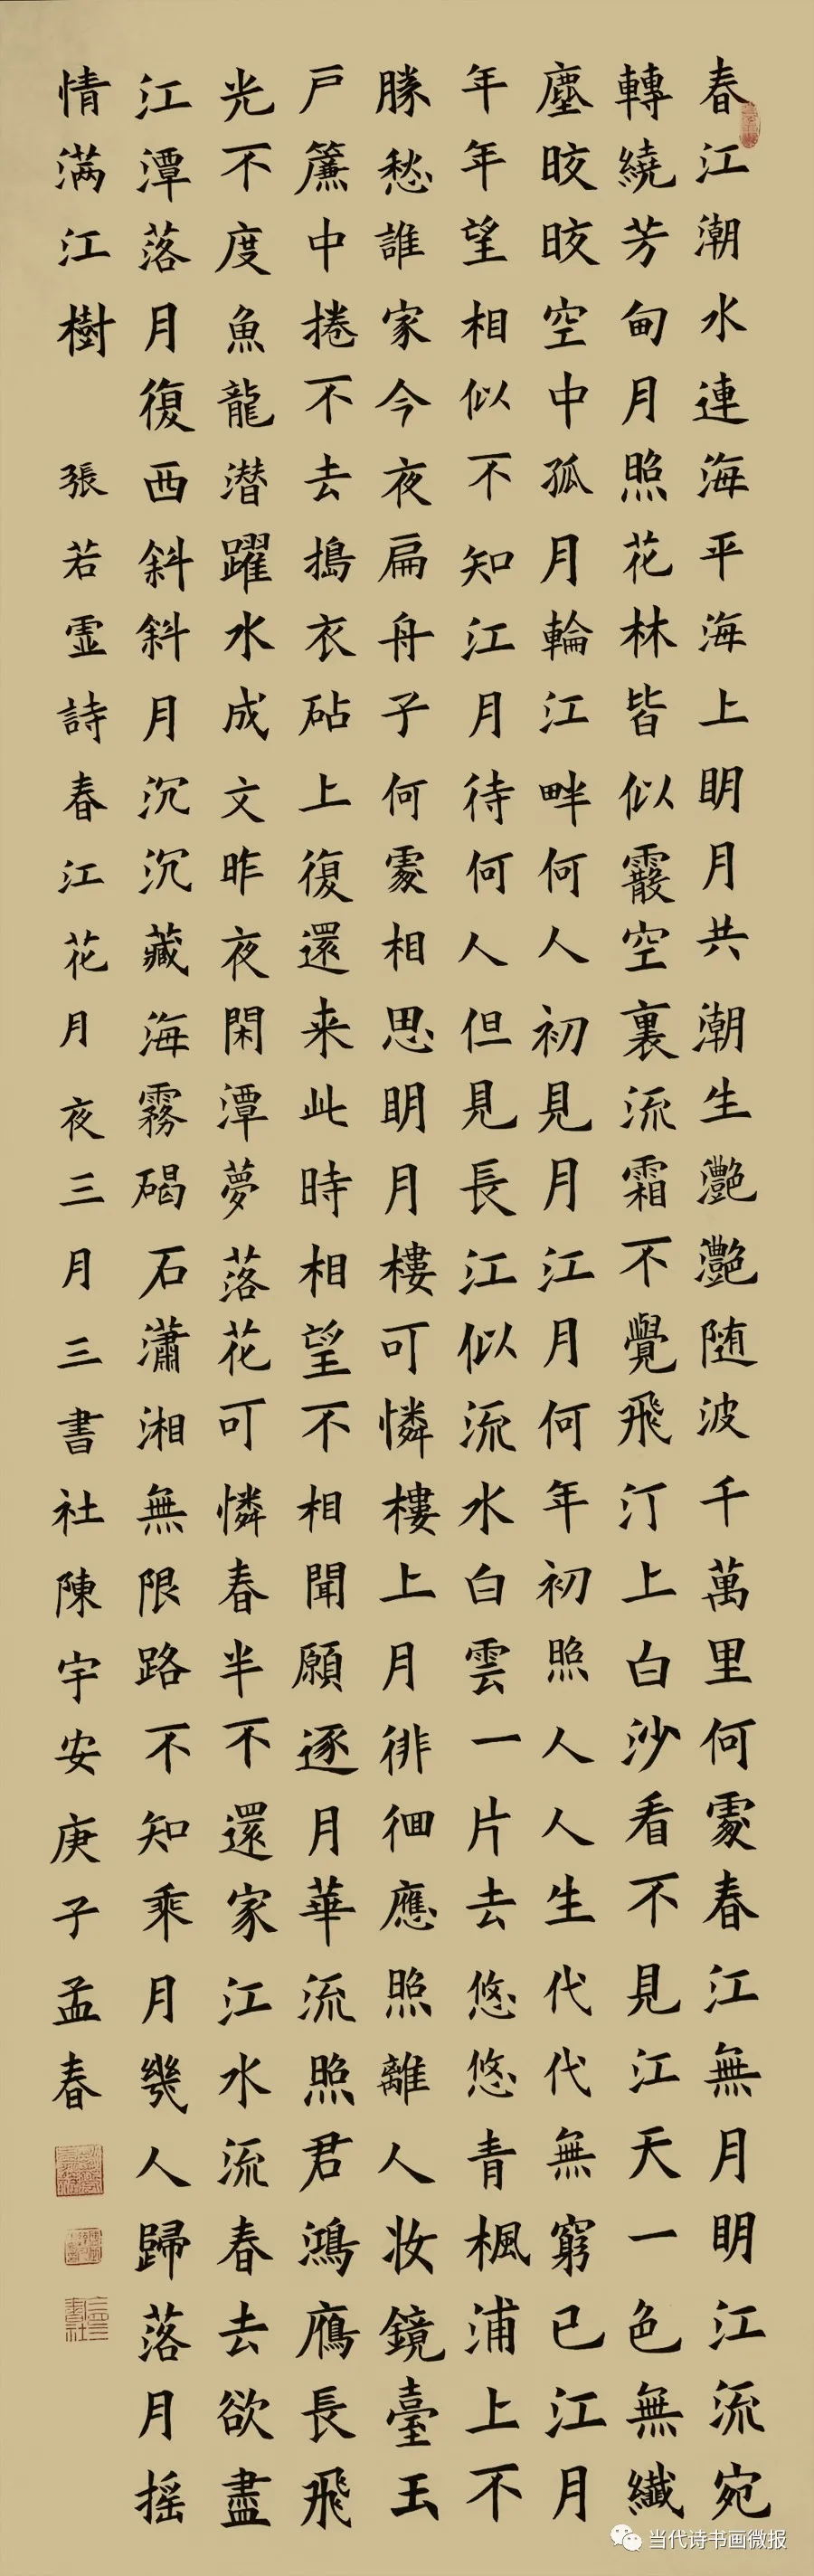 春江潮水連海平海上明月共潮生灧灧随波千萬里何處春江無月明江流宛
轉繞芳甸月照花林皆似霰空裏流霜不覺飛汀上白沙看不見江天一色無纖
塵晈晈空中孤月輪江畔何人初見月江月何年初照人人生代代無窮已江月
年年望相似不知江月待何人但見長江似流水白雲一片去悠悠青楓浦上不
勝愁誰家今夜扁舟子何處相思明月樓可憐樓上月徘徊應照離人妆鏡臺玉
戶簾中捲不去搗衣砧上復還来此時相望不相聞願逐月華流照君鴻鴈長飛
光不度魚龍潜躍水成文昨夜閑潭夢落花可憐春半不還家江水流春去欲盡
江潭落月復西斜斜月沉沉藏海霧碣石瀟湘無限路不知乘月幾人歸落月摇
情满江樹 張若虛詩春江花月夜三月三書社陳宇安庚子孟春
当代诗书画微报